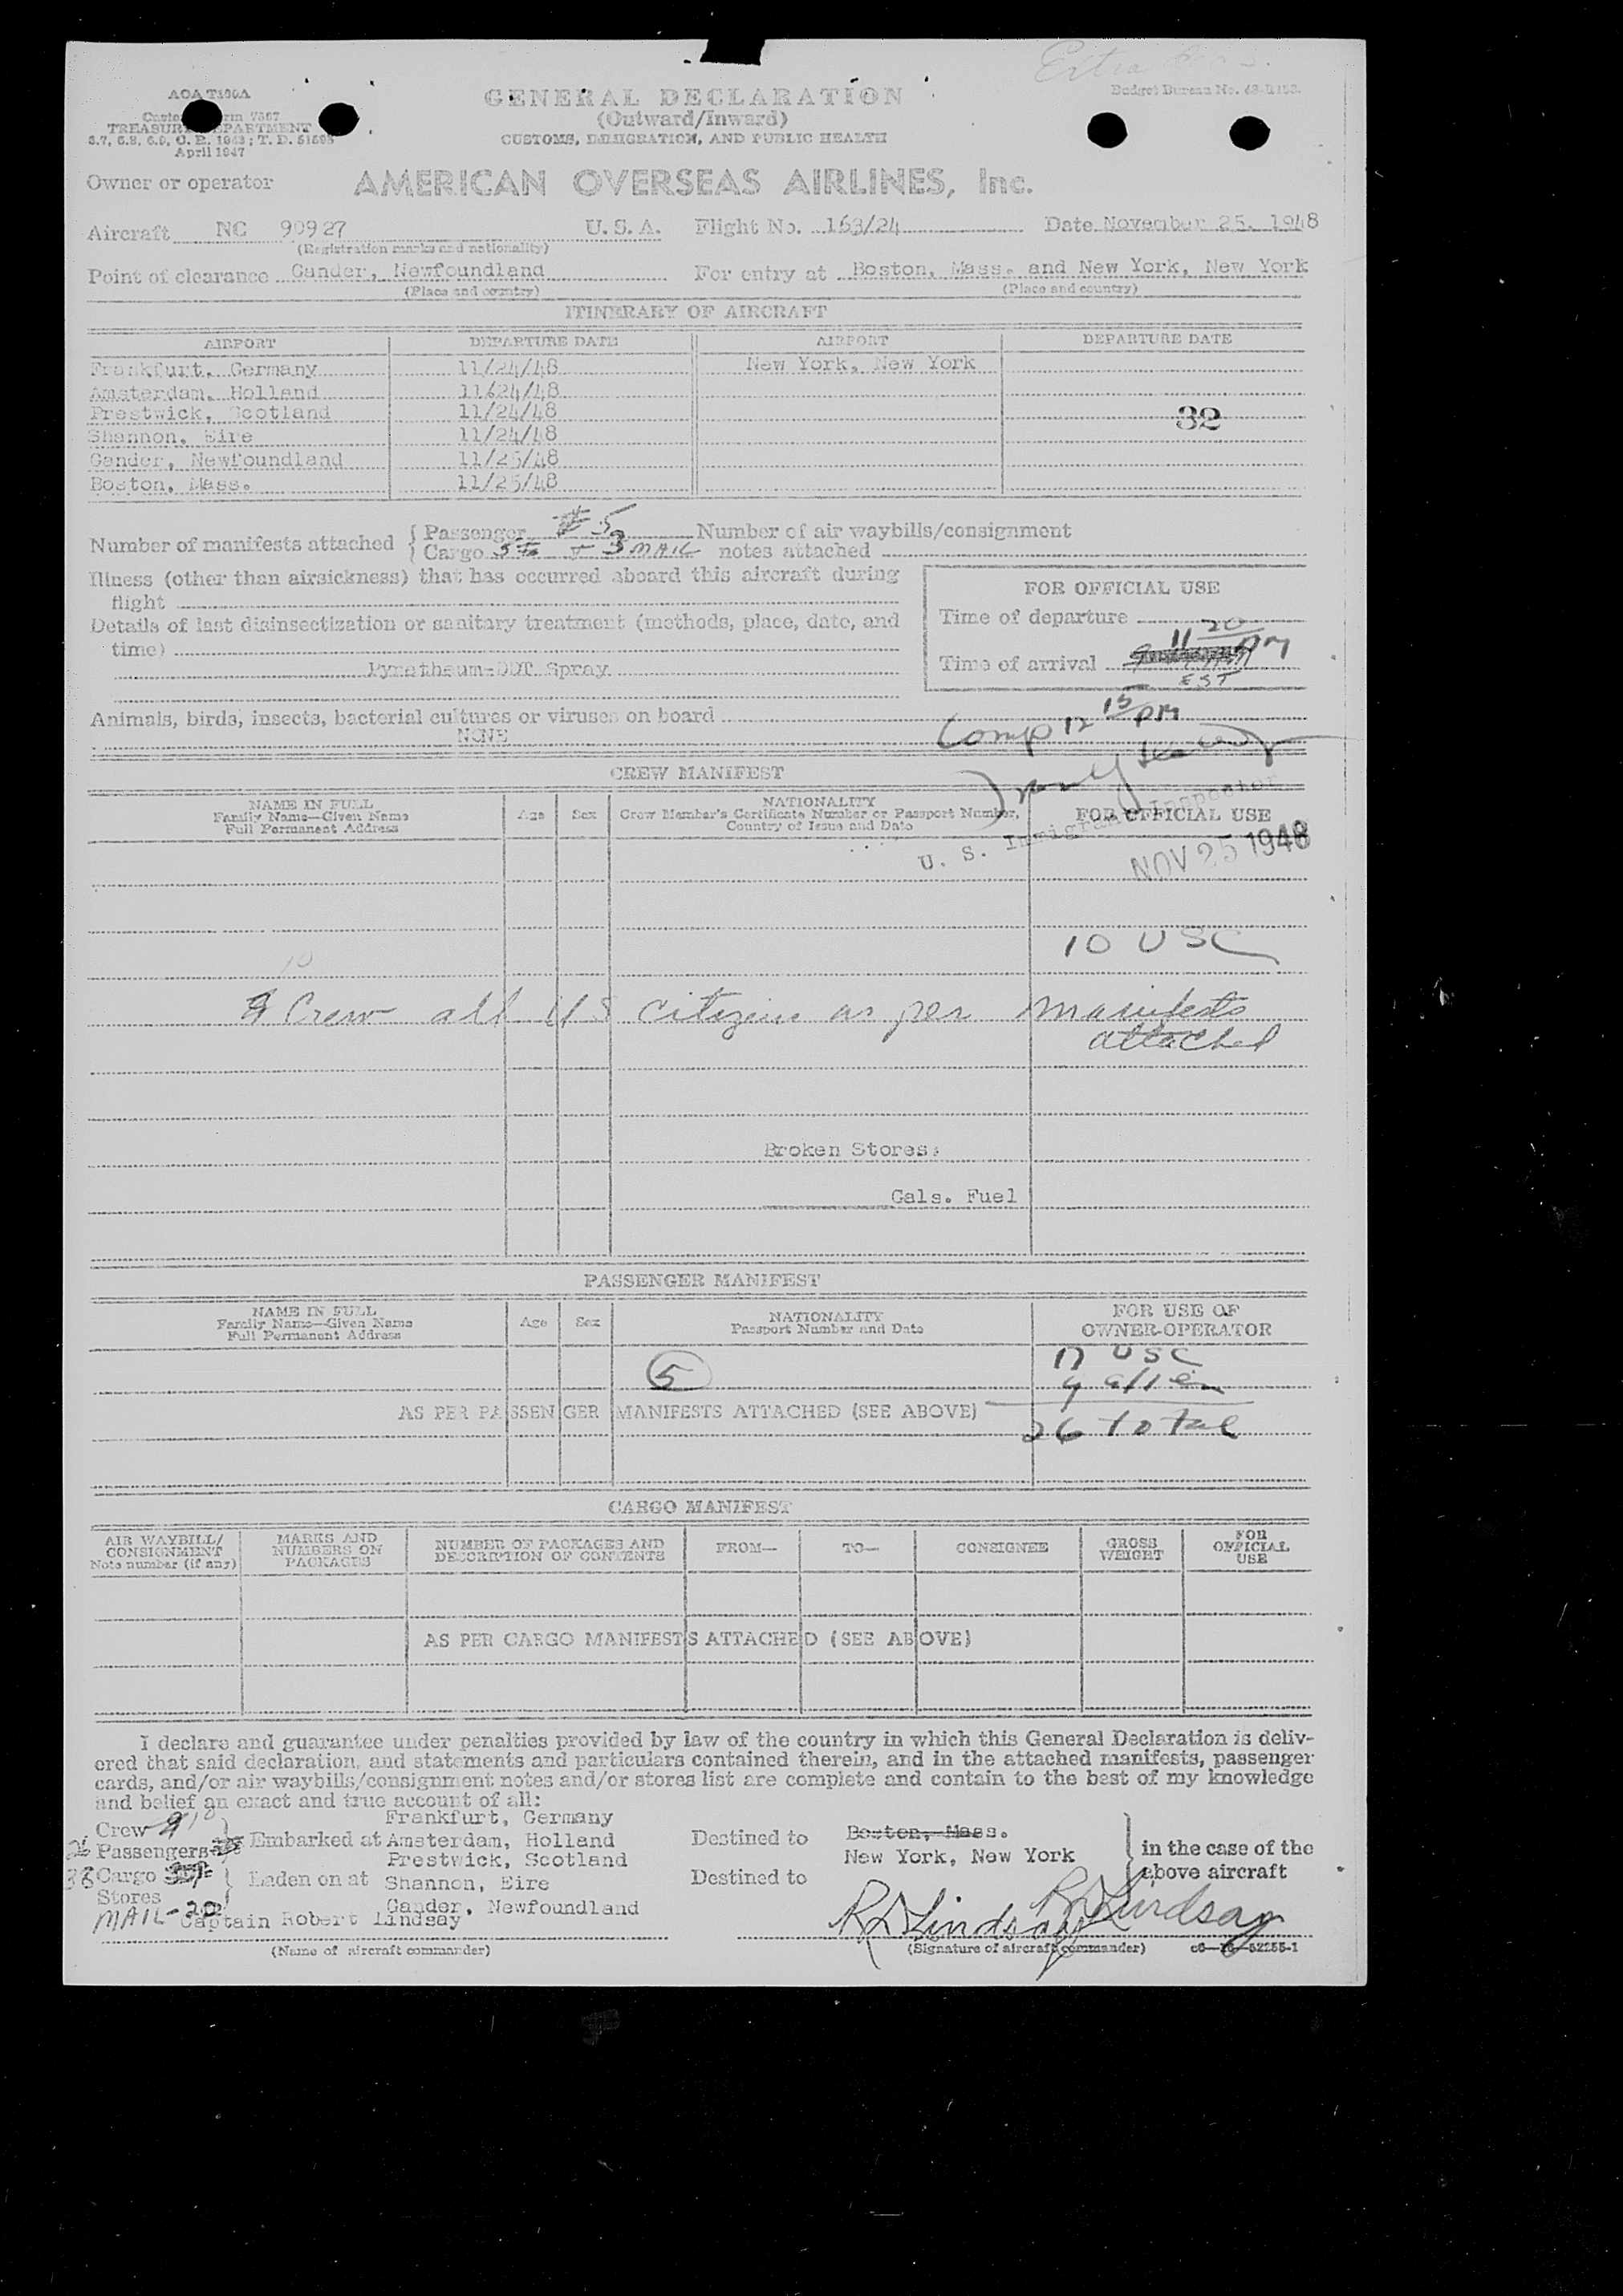 Extra
AOA T100A
Budget Bureau No.
Customs Form 7507
TREASURY DEPARTMENT
April 1947
GENERAL DECLARATION
(Outward/Inward)
CUSTOMS, IMMIGRATION, AND PUBLIC HEALTH
Owner or operator AMERICAN OVERSEAS AIRLINES, Inc.
Aircraft NC 90927 U. S. A. Flight No. 163/24 Date November 25, 1948
(Registration marks and nationality)
Point of clearance Gander, Newfoundland For entry at Boston, Mass. and New York, New York
(Place and country) (Place and country)
ITINERARY OF AIRCRAFT
AIRPORT DEPARTURE DATE AIRPORT DEPARTURE DATE
Frankfurt, Germany 11/24/48 New York, New York
Amsterdam, Holland 11624/48
Prestwick, Scotland 11/24/48 32
Shannon, Eire 11/24/48
Gander, Newfoundland 11/25/48
Boston, Mass. 11/25/48
Number of manifests attached { Passenger 5 Number of air waybills/consignment
Cargo 3 MAIL notes attached
Illness (other than airsickness) that has occurred aboard this aircraft during
flight
FOR OFFICIAL USE
Details of last disinsectization or sanitary treatment (methods, place, date, and
time)
Pyrathaum-DDT Spray
Time of departure
Time of arrival 11 20 PM
EST
Animals, birds, insects, bacterial cultures or viruses on board
NONE
Comp 12 15 PM
CREW MANIFEST
NAME IN FULL
Family Name—Given Name
Full Permanent Address
Age Sex
NATIONALITY
Crew Member's Certificate Number or Passport Number,
Country of Issue and Date
FOR OFFICIAL USE
U. S. Immigrant Inspector
NOV 25 1948
10 USC
10
Crew all US citizens as per manifests
attached
Broken Stores:
Gals. Fuel
PASSENGER MANIFEST
NAME IN FULL
Family Name—Given Name
Full Permanent Address
Age Sex
NATIONALITY
Passport Number and Date
FOR USE OF
OWNER-OPERATOR
5
17 USC
9 alien
AS PER PASSENGER MANIFESTS ATTACHED (SEE ABOVE)
26 total
CARGO MANIFEST
AIR WAYBILL/
CONSIGNMENT
Note number (if any)
MARKS AND
NUMBERS ON
PACKAGES
NUMBER OF PACKAGES AND
DESCRIPTION OF CONTENTS
FROM— TO— CONSIGNEE
GROSS
WEIGHT
FOR
OFFICIAL
USE
AS PER CARGO MANIFESTS ATTACHED (SEE ABOVE)
I declare and guarantee under penalties provided by law of the country in which this General Declaration is deliv-
ered that said declaration, and statements and particulars contained therein, and in the attached manifests, passenger
cards, and/or air waybills/consignment notes and/or stores list are complete and contain to the best of my knowledge
and belief an exact and true account of all:
Frankfurt, Germany
Crew 10
26 Passengers Embarked at Amsterdam, Holland Destined to Boston, Mass.
Prestwick, Scotland New York, New York in the case of the
38 Cargo Laden on at Shannon, Eire Destined to above aircraft
Stores
Gander, Newfoundland
MAIL-20
Captain Robert Lindsay
RD Lindsay RD Lindsay
(Name of aircraft commander) (Signature of aircraft commander) c6—16—52255-1